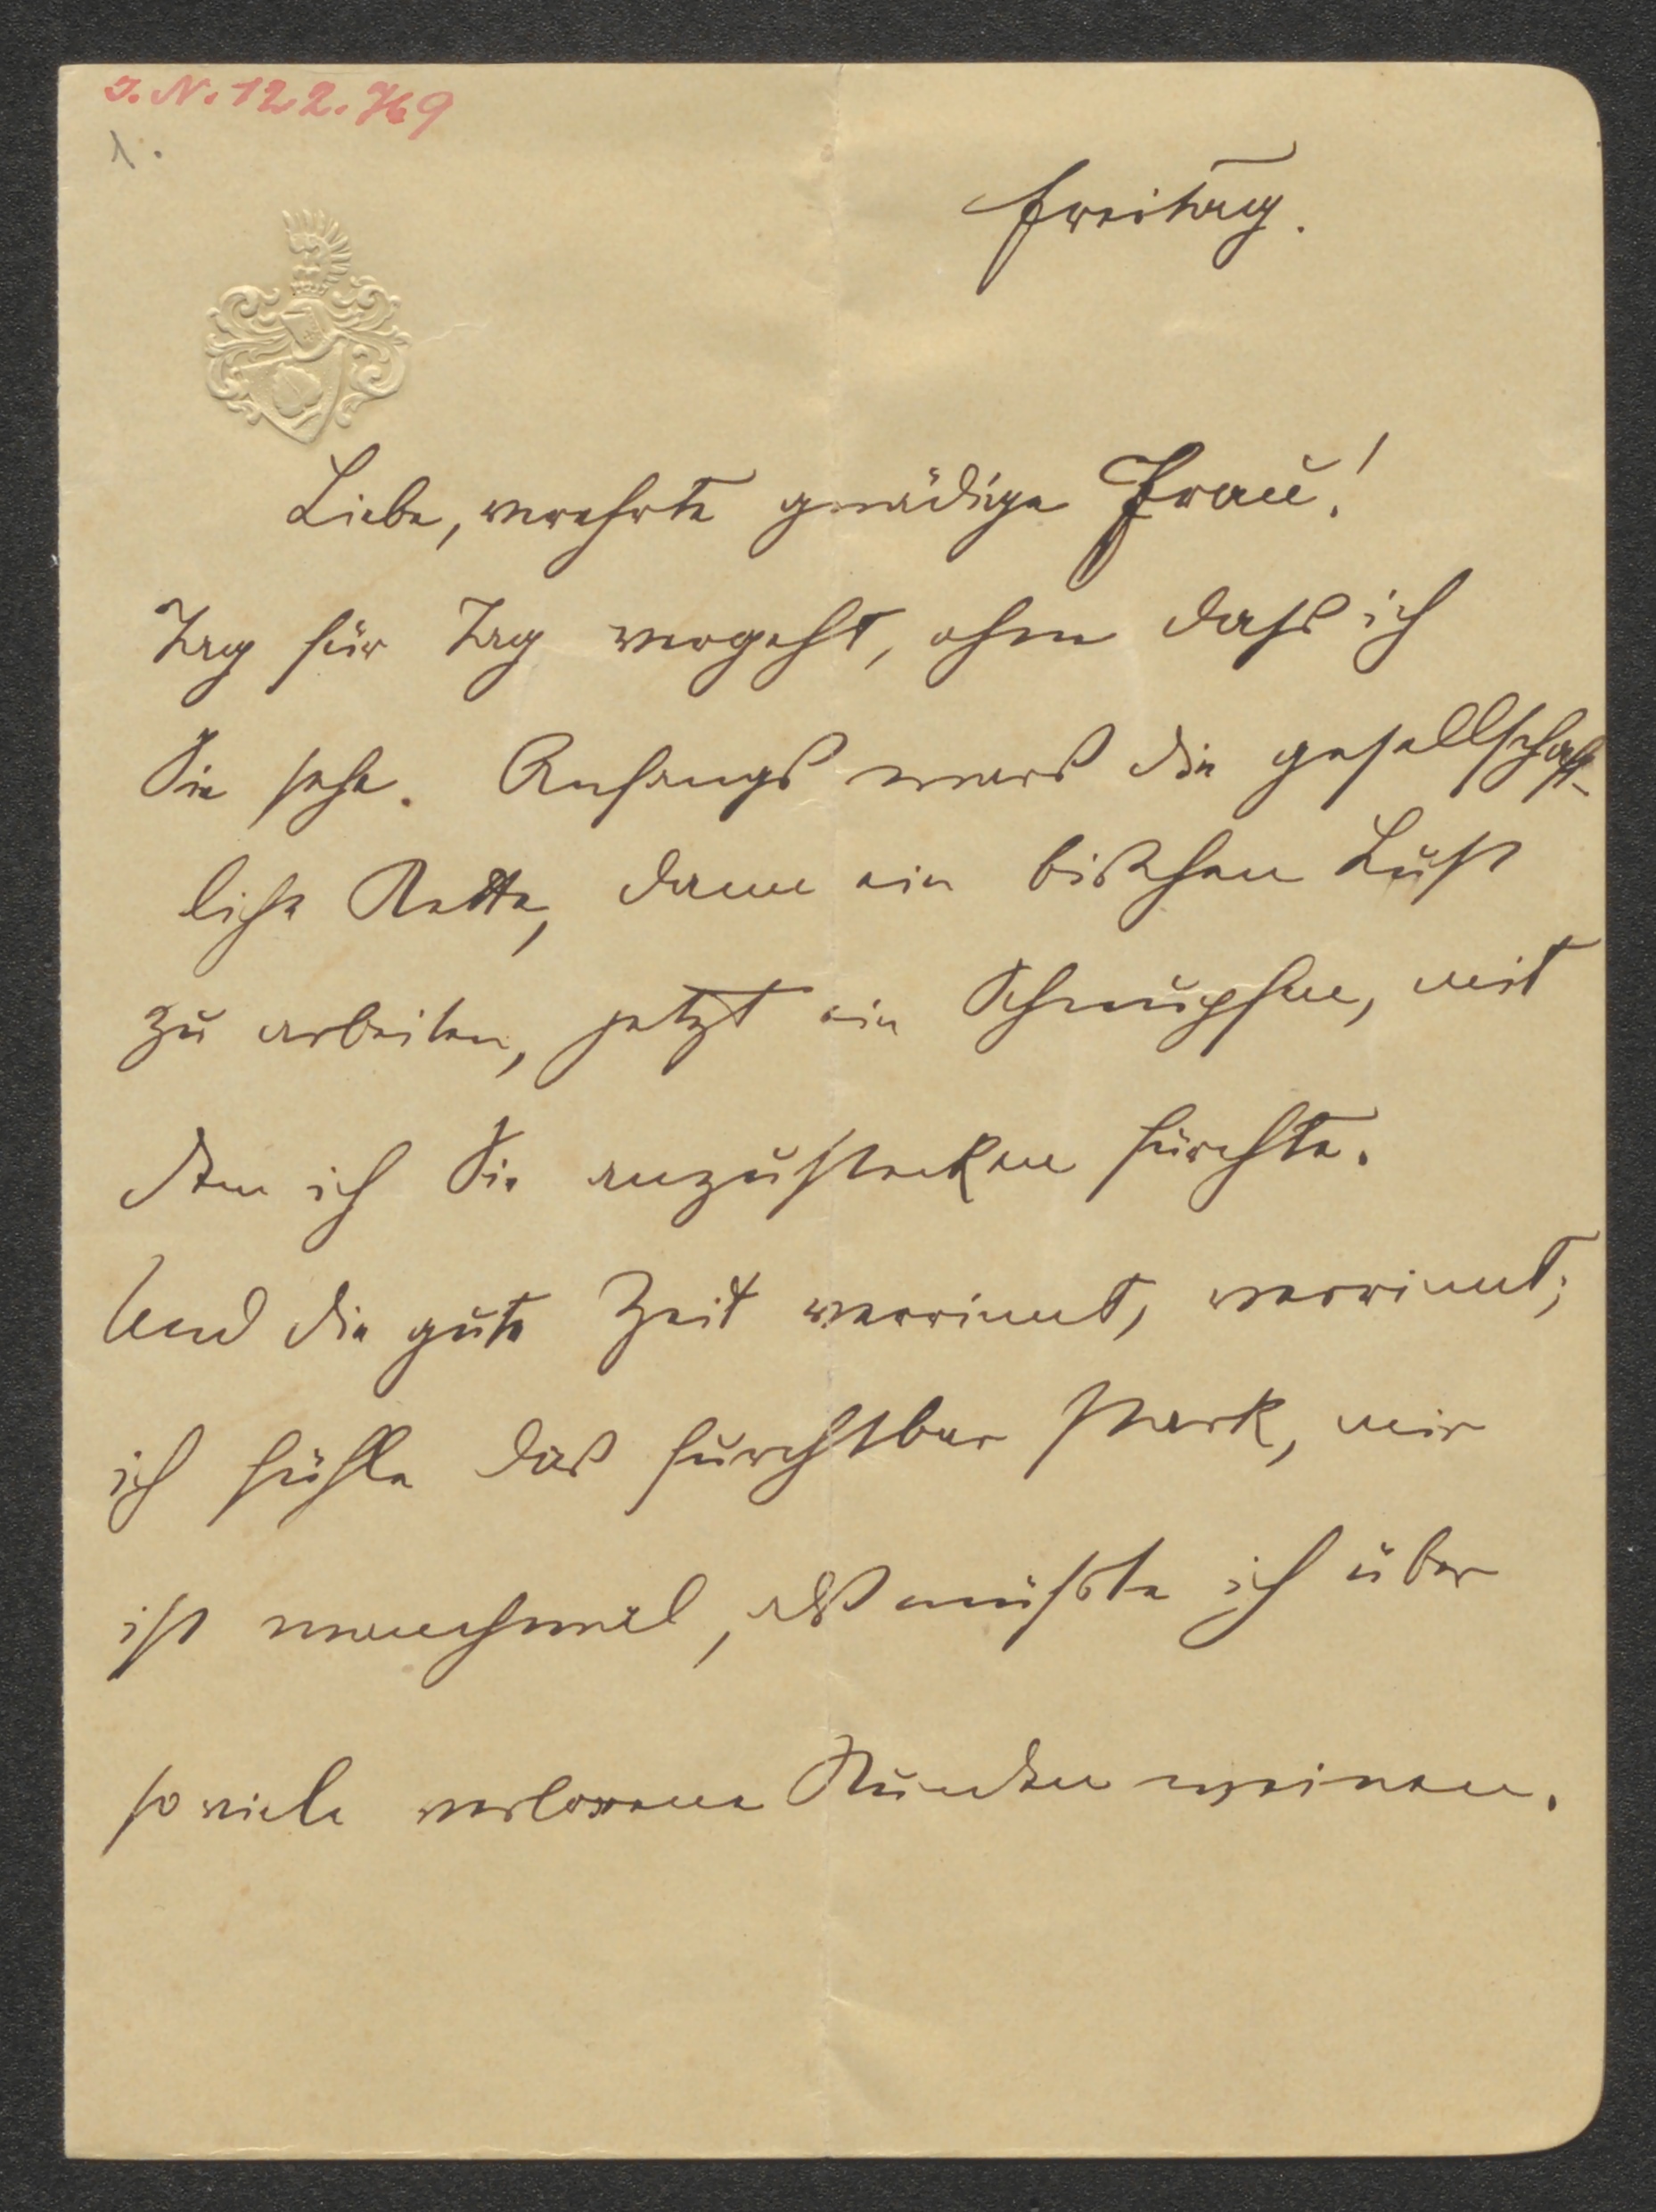 I. N. 122.769
1.
Freitag.
Liebe, verehrte gnädige Frau!
Tag für Tag vergeht, ohne dass ich
Sie sehe. Anfangs wars die gesellschaft-
liche Kette, dann ein bischen Lust
zu arbeiten, jetzt ein Schnupfen, mit
dem ich Sie anzustecken fürchte.
Und die gute Zeit verrinnt, verrinnt;
ich fühle das furchtbar stark, mir
ist manchmal, als müsste ich über
so viele verlorene Stunden weinen.